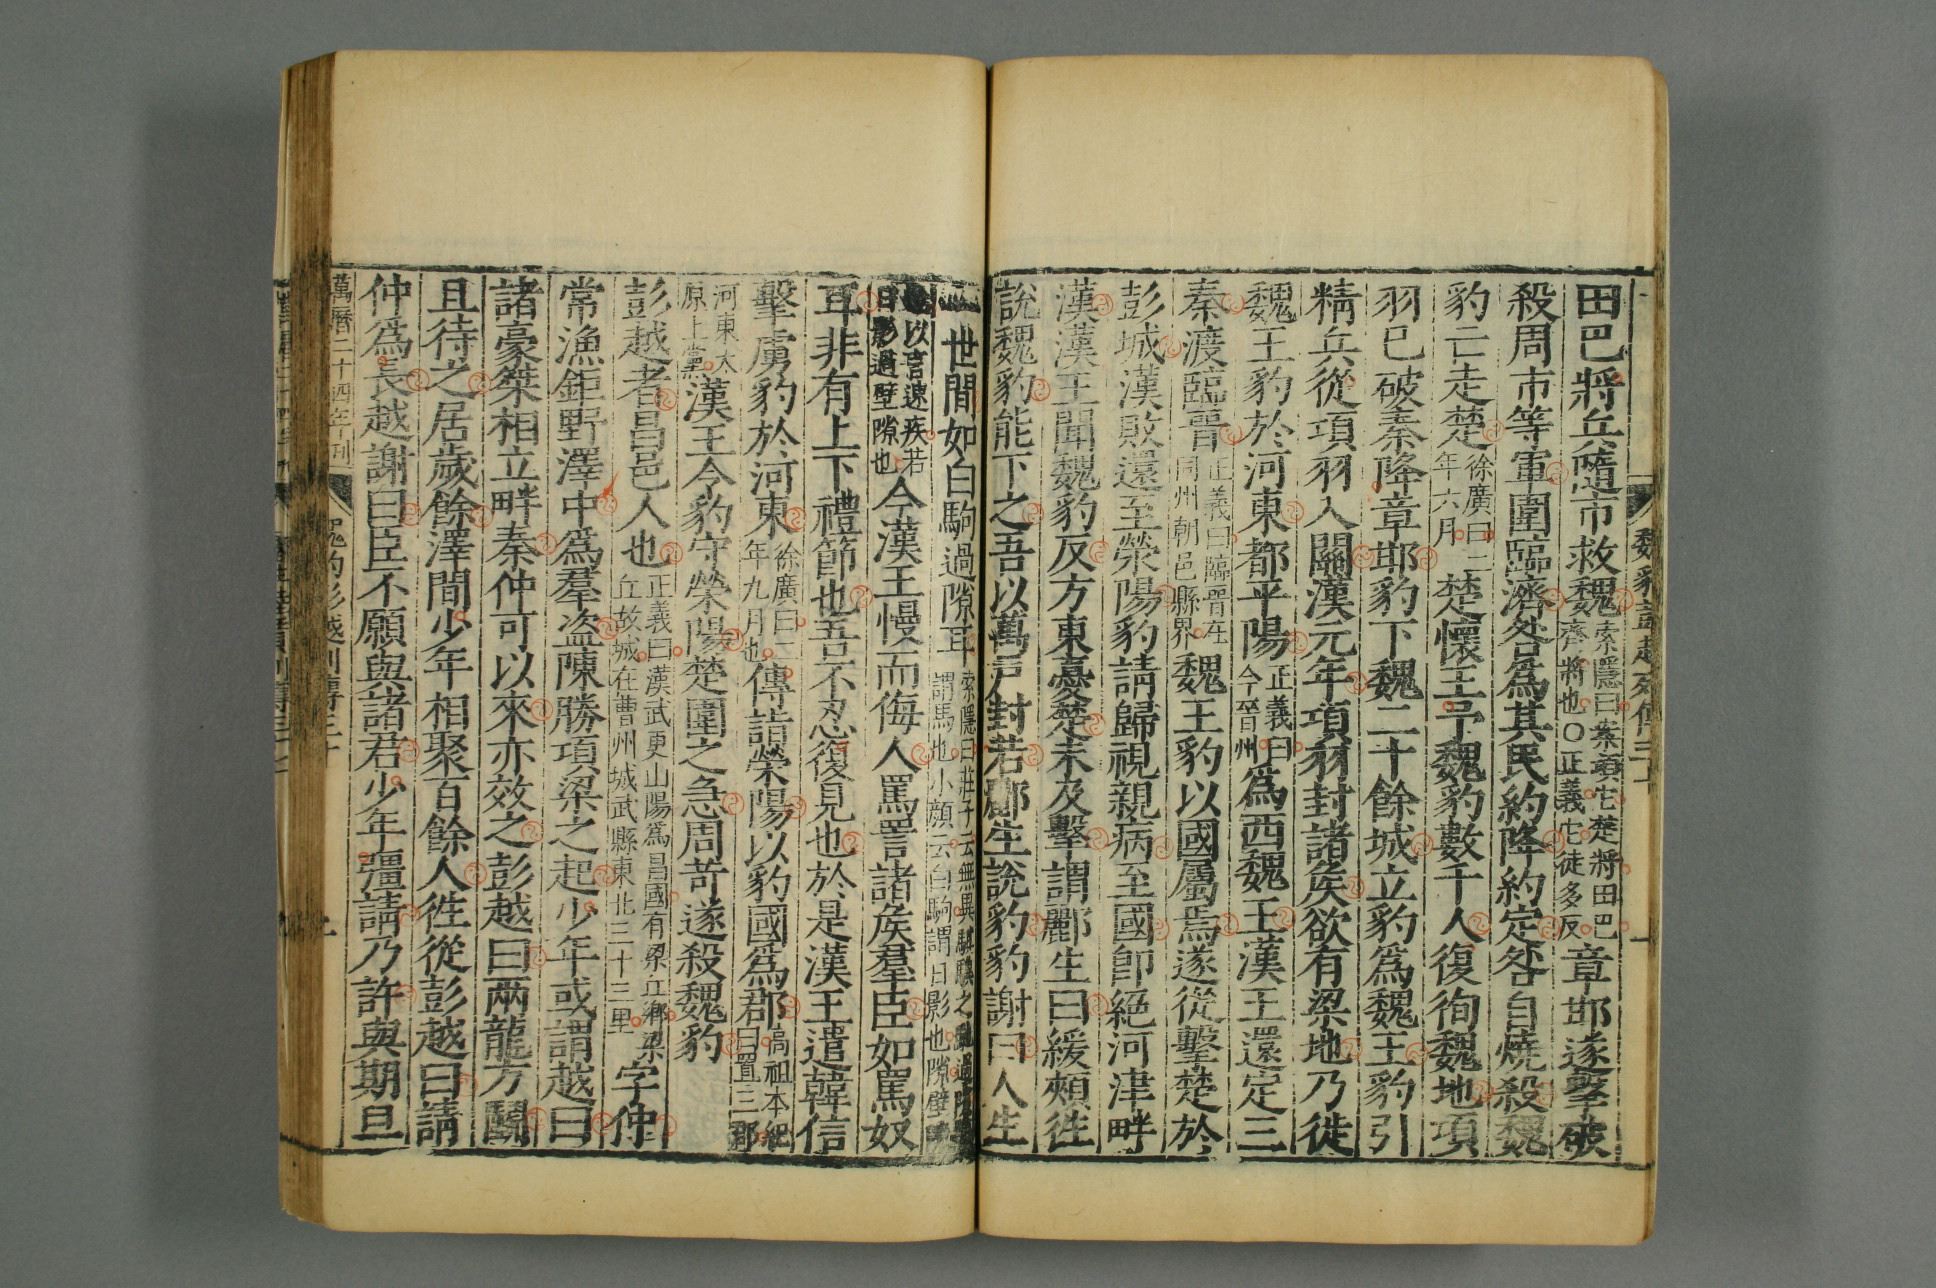 魏豹彭越列傳三十
田巴將兵隨市救魏索隱曰案項它楚將田巴
齊將也○正義它徒多反章邯遂擊破
殺周市等軍圍臨濟咎爲其民約降約定咎自燒殺魏
豹亡走楚徐廣曰二年六月楚懷王予魏豹數千人復徇魏地項
羽已破秦降章邯豹下魏二十餘城立豹爲魏王豹引
精兵從項羽入關漢元年項羽封諸侯欲有梁地乃徙
魏王豹於河東都平陽正義曰今晉州爲西魏王漢王還定三
秦渡臨晉正義曰臨晉在同州朝邑縣界魏王豹以國屬焉遂從擊楚於
彭城漢敗還至滎陽豹請歸視親病至國卽絕河津畔
漢漢王聞魏豹反方東憂楚未及擊謂酈生曰緩頰徃
說魏豹能下之吾以萬戶封若酈生說豹豹謝曰人生
一世間如白駒過隙耳索隱曰莊子云無異騏驥之馳過隙
謂馬也小顏云白駒謂日影也隙壁
以言速疾若日影過壁隙也今漢王慢而侮人罵詈諸侯羣臣如罵奴
耳非有上下禮節也吾不忍復見也於是漢王遣韓信
擊虜豹於河東徐廣曰二年九月也傳詣滎陽以豹國爲郡高祖本紀曰置三郡
河東太原上黨漢王令豹守滎陽楚圍之急周苛遂殺魏豹
彭越者昌邑人也正義曰漢武更山陽爲昌國有梁丘鄉梁
丘故城在曹州城武縣東北三十三里字仲
常漁鉅野澤中爲羣盜陳勝項梁之起少年或謂越曰
諸豪桀相立畔秦仲可以來亦效之彭越曰兩龍方鬭
且待之居歲餘澤間少年相聚百餘人徃從彭越曰請
仲爲長越謝曰臣不願與諸君少年彊請乃許與期旦
萬曆二十四年刊
魏豹彭越列傳三十